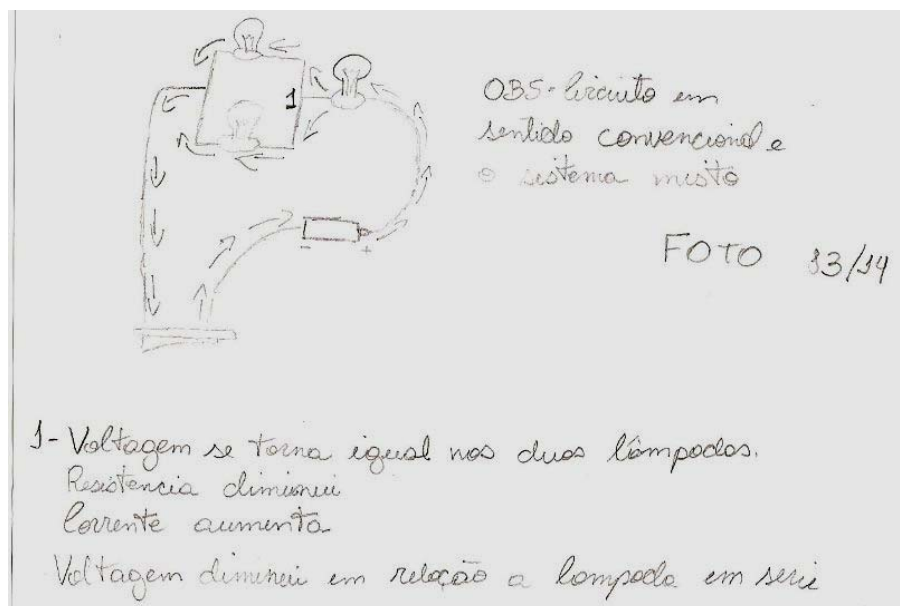 1
OBS - Circuito em
sentido convencional e
o sistema misto
- +
FOTO 13/14
1- Voltagem se torna igual nas duas lâmpadas.
Resistencia diminui
Corrente aumenta
Voltagem diminui em relação a lampada em serie